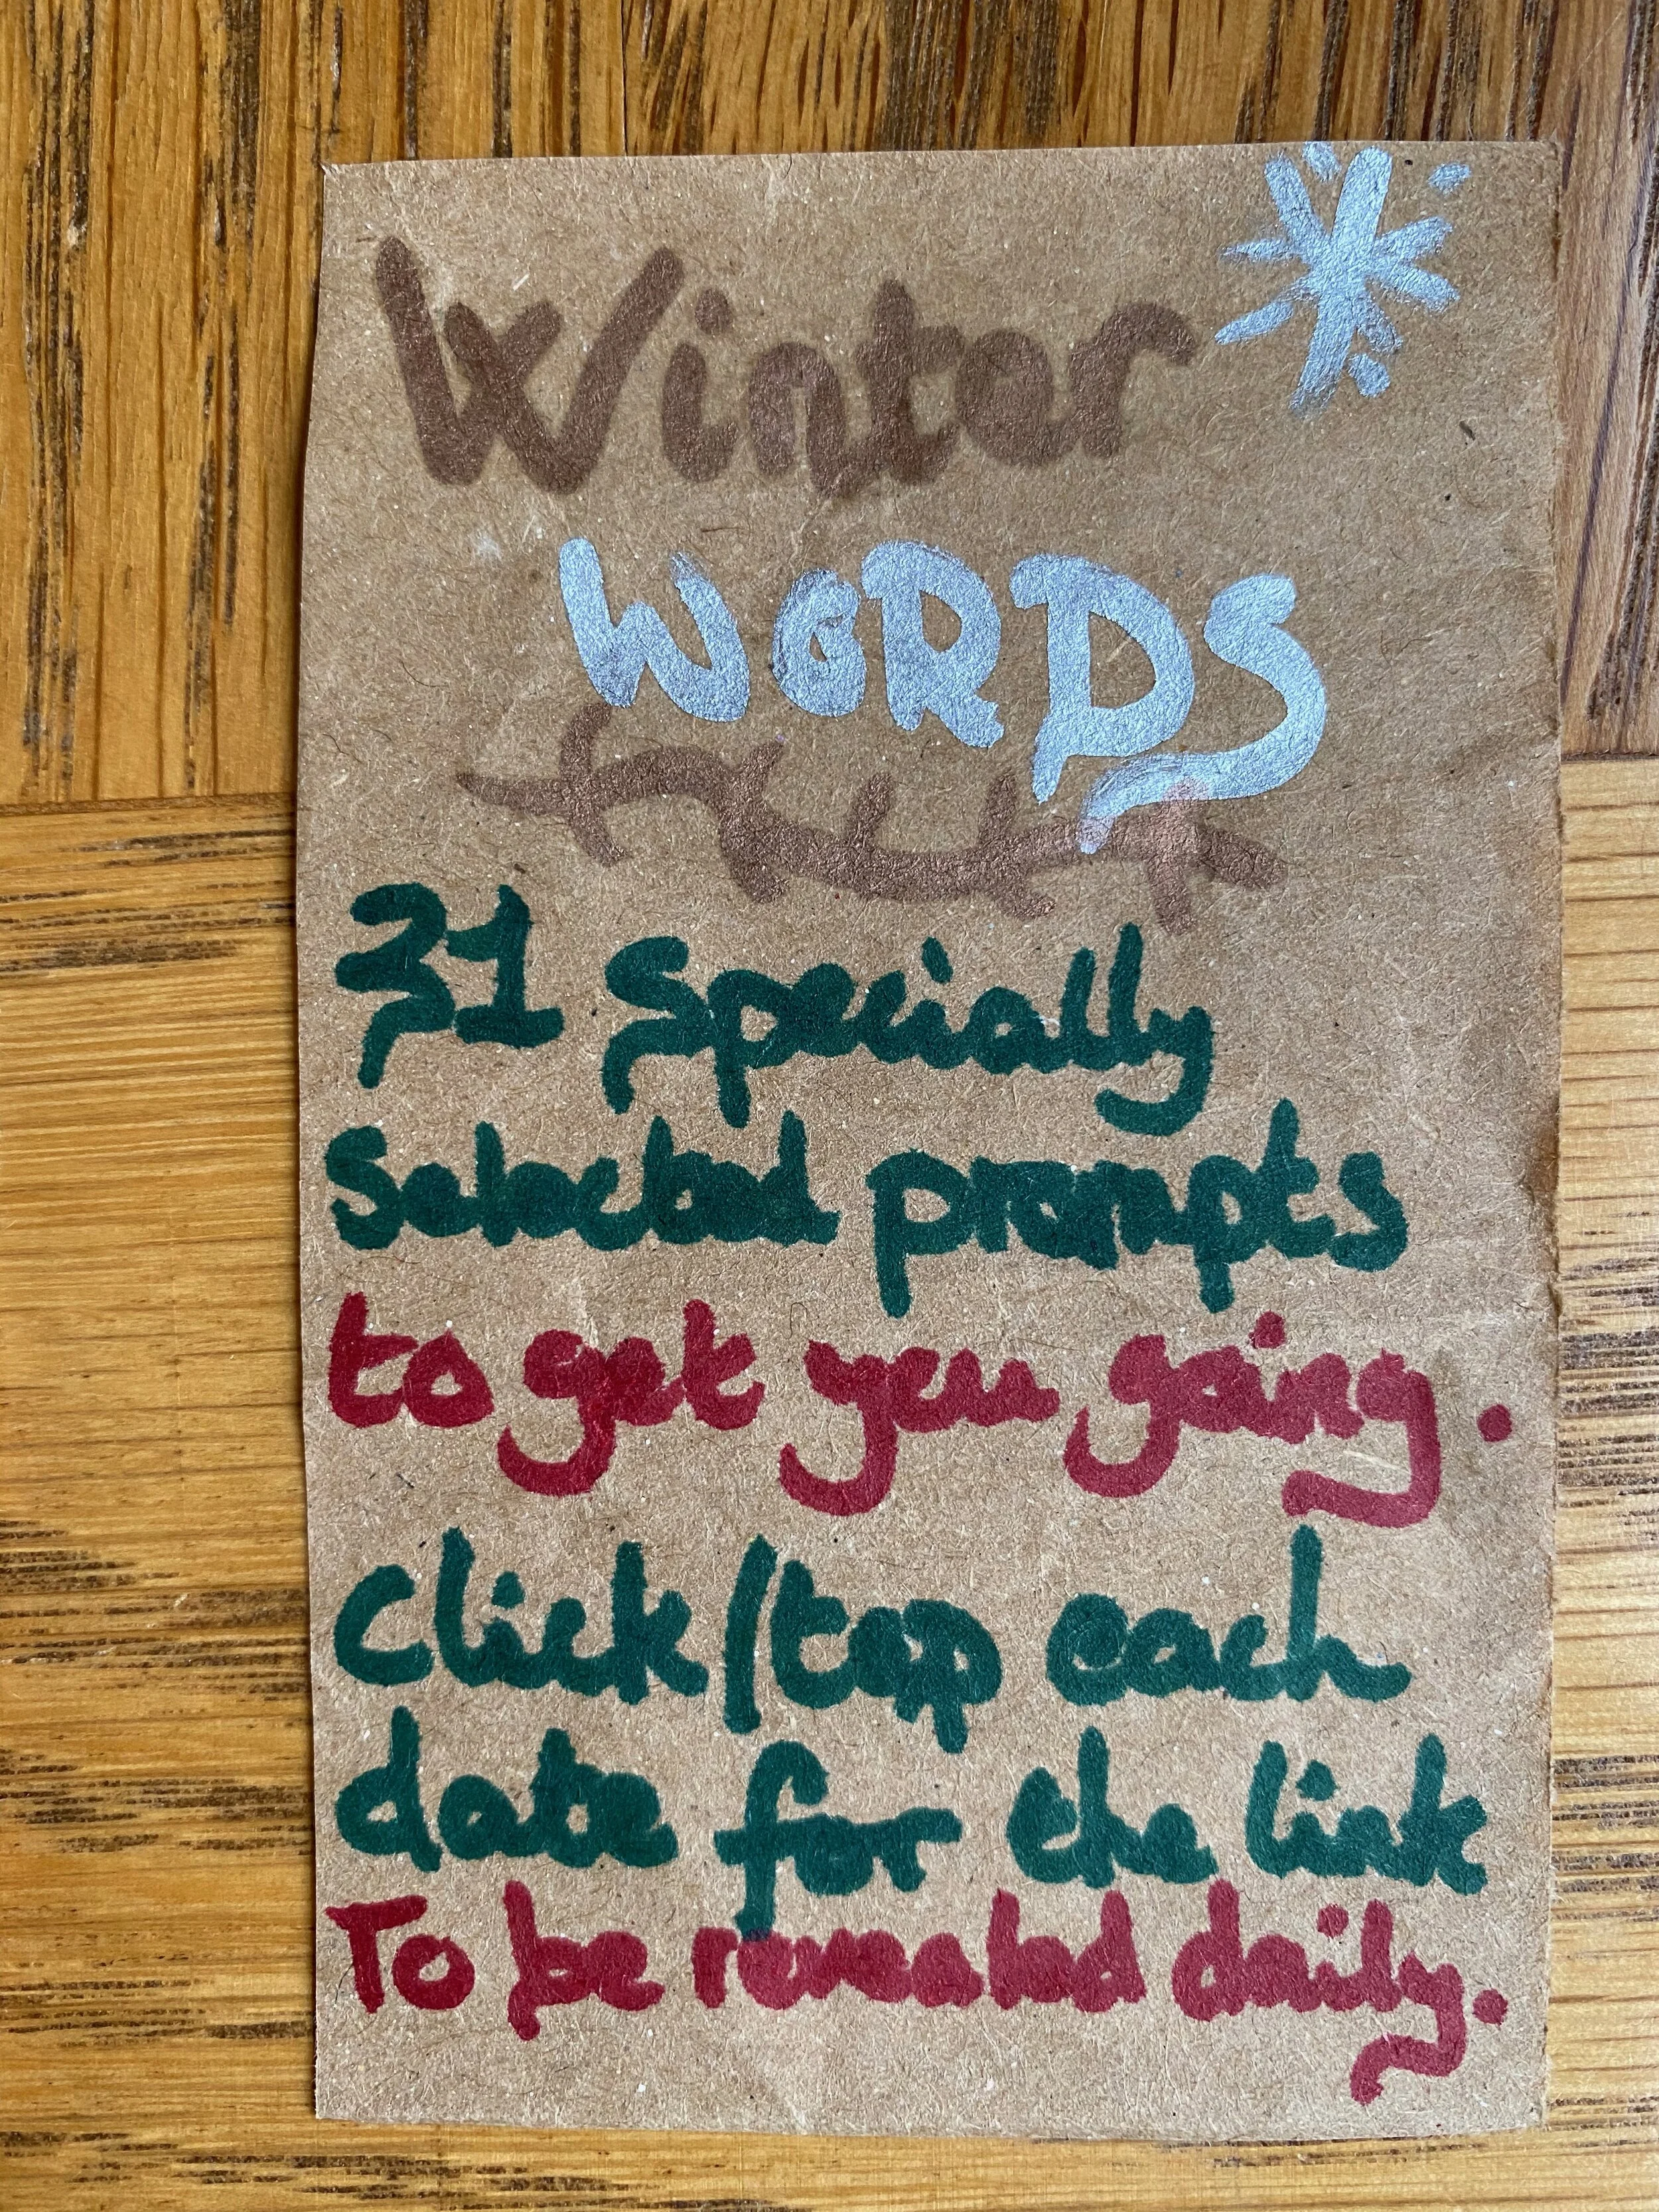 Winter
WORDS
31 Specially
Selected prompts
to get you going.
Click/tap each
date for the link
To be revealed daily.